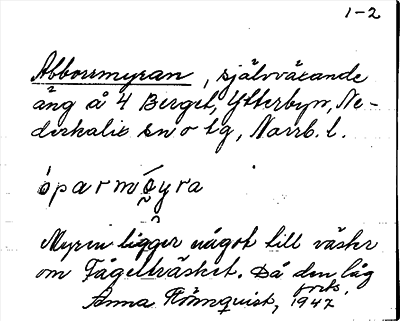 1-2
Abborrmyran, självväxande
äng å 4 Berget, Ytterbyn, Ne-
derkalix sn o tg, Norrb. l.
óparmýra
Myren ligger något till väster
om Fågelträsket. Då den låg
Anna Rönnquist, 1947